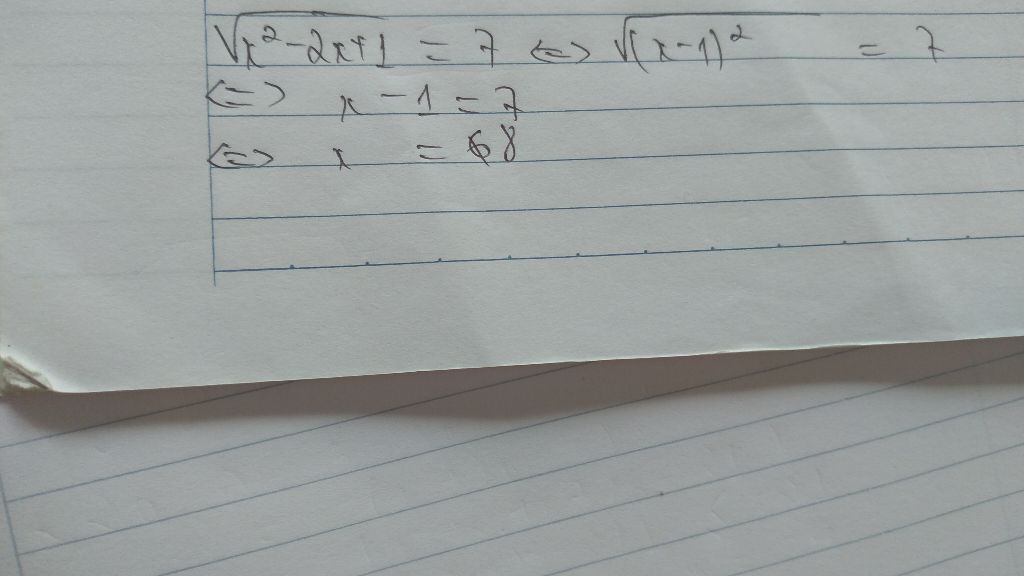 √(x²-2x+1) = 7 <=> √(x-1)² = 7
<=> x - 1 = 7
<=> x = 8